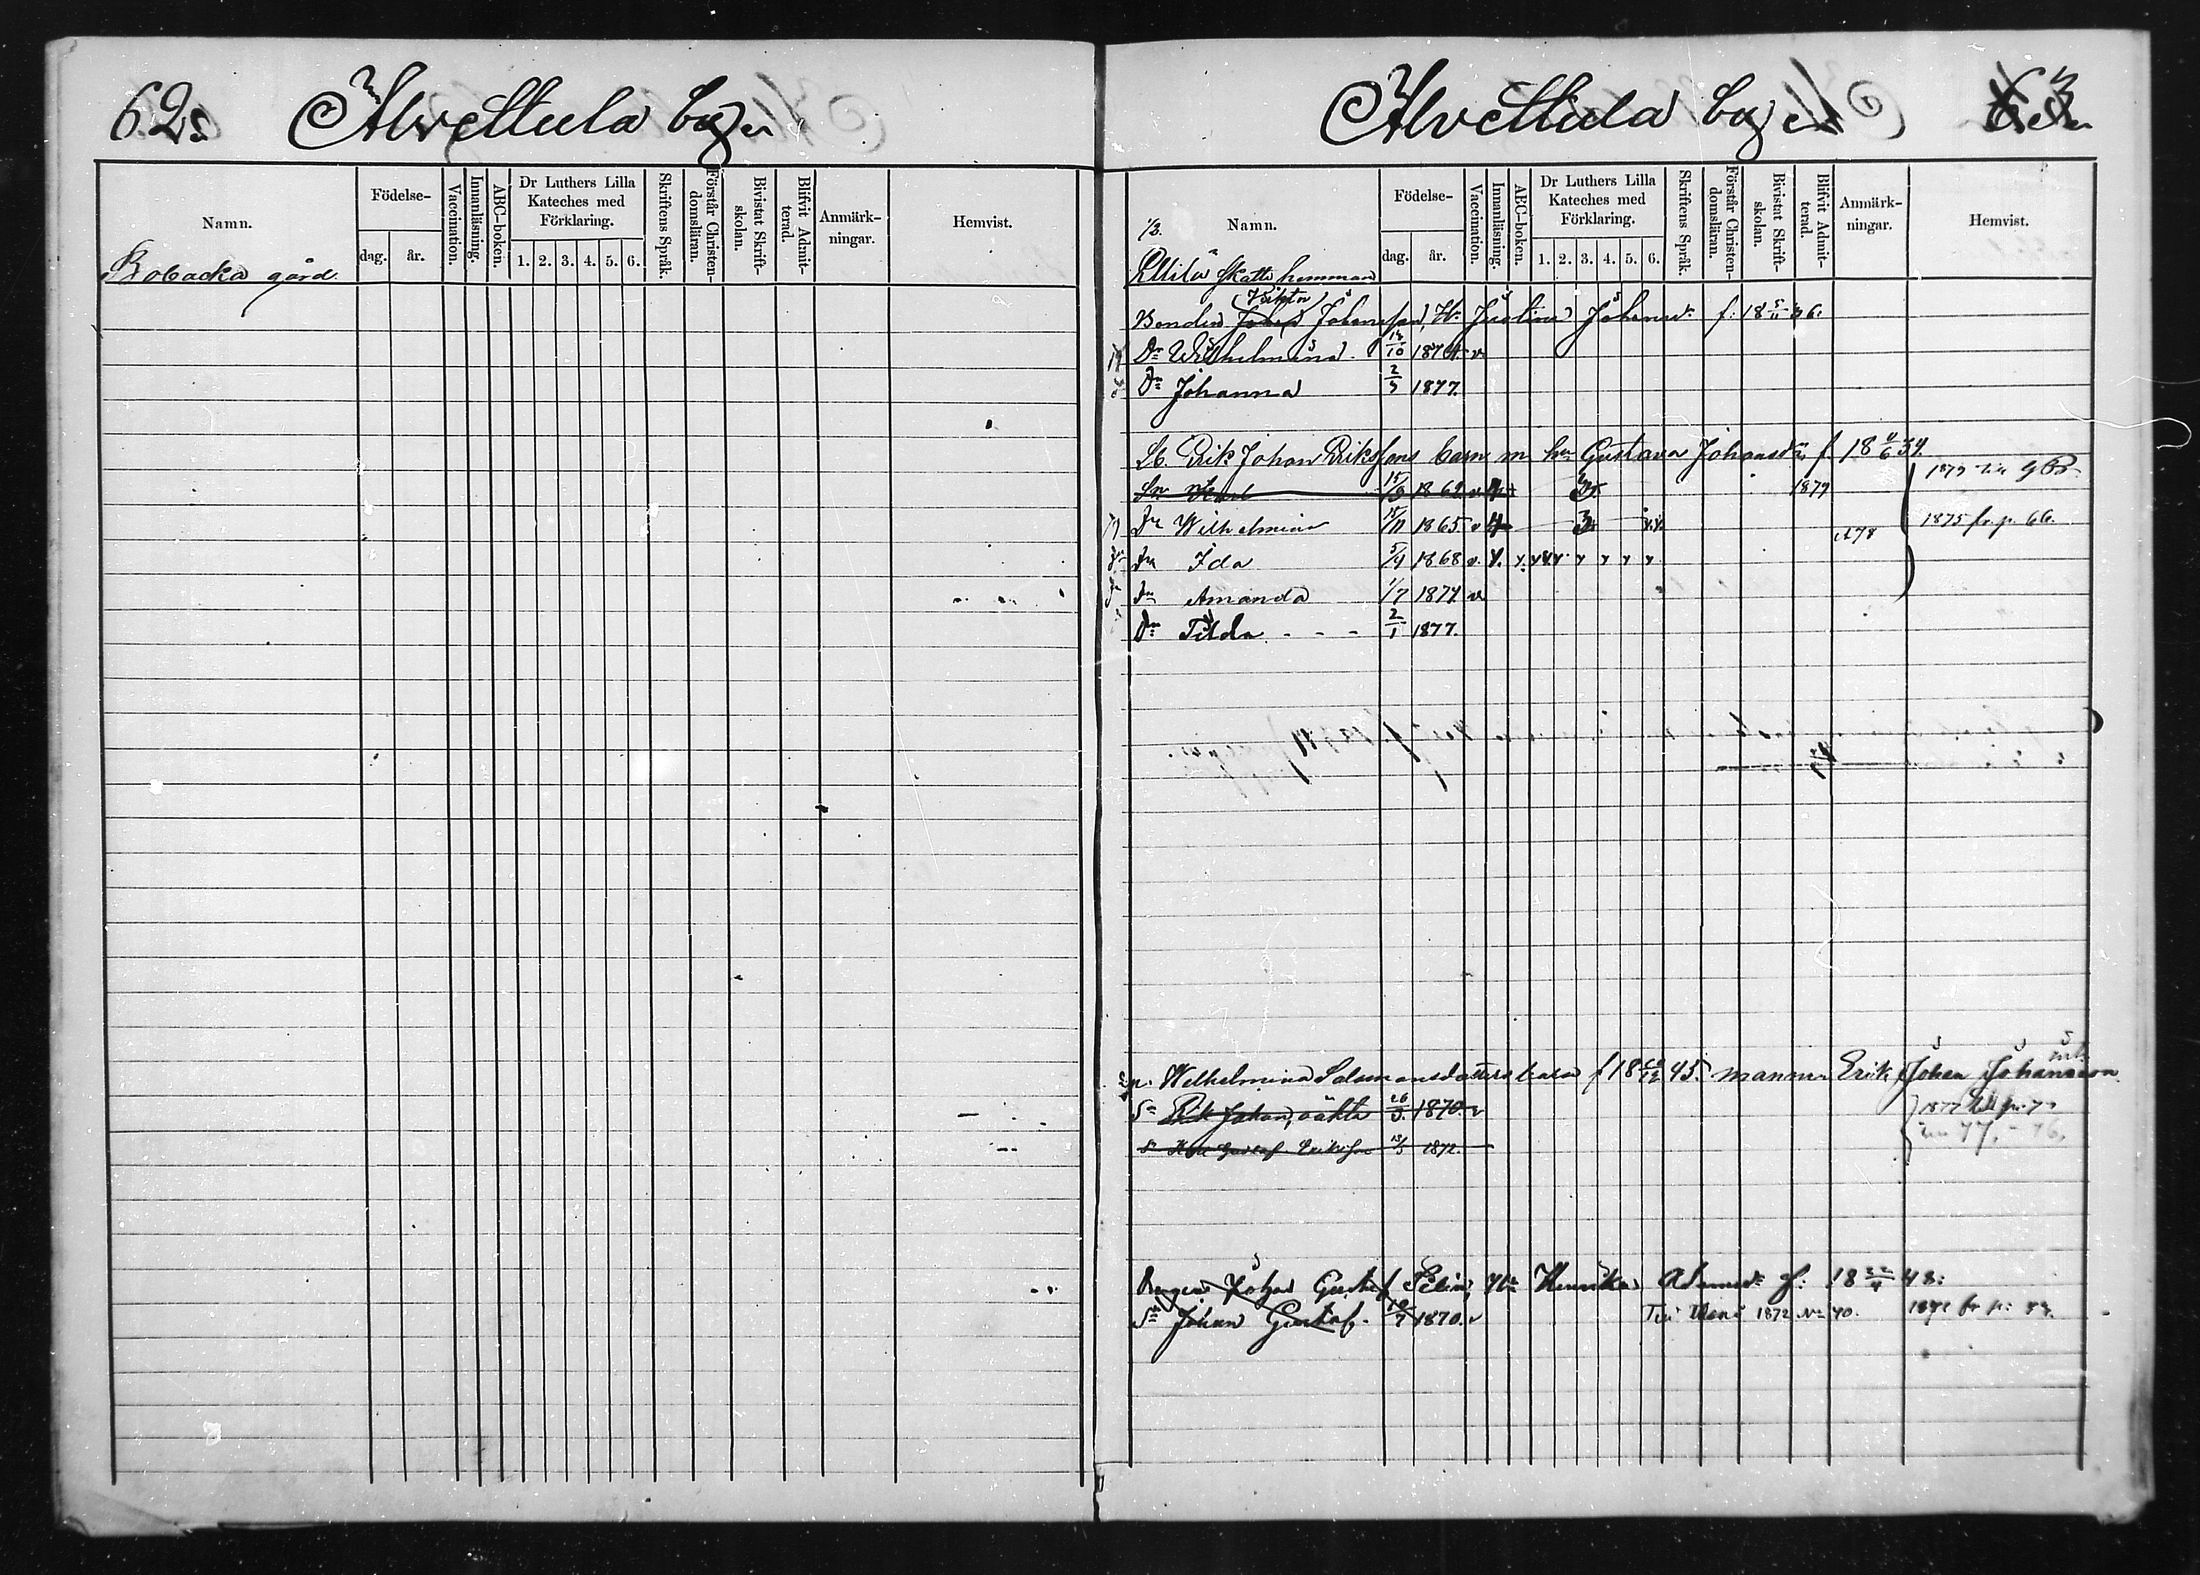 62. Alvettula by
Namn. Födelse- dag. år. Vaccination. Innanläsning. ABC-boken. Dr Luthers Lilla Kateches med Förklaring. 1. 2. 3. 4. 5. 6. Skriftens Språk. Förstår Christendomsläran. Bivistat Skriftskolan. Blifvit Admitterad. Anmärkningar. Hemvist.
Bobacka gård
Alvettula by 63.
Namn. Födelse- dag. år. Vaccination. Innanläsning. ABC-boken. Dr Luthers Lilla Kateches med Förklaring. 1. 2. 3. 4. 5. 6. Skriftens Språk. Förstår Christendomsläran. Bivistat Skriftskolan. Blifvit Admitterad. Anmärkningar. Hemvist.
1/3.
Ellilä Skatte hemman
Viktor
Bonden Johansson, Hu Justina Johansdr f. 18 5/11 46.
Dr Wilhelmina 14/10 1874 v
Dr Johanna 2/9 1877.
Lb. Erik Johan Erikssons barn m hu Gustava Johansdr f. 18 11/6 34.
Sn Karl 15/3 1862 v 1879 1879
Dr Wilhelmina 15/11 1865 v 3 1878 1875 fr. p. 66.
Dr Ida 5/4 1868 v.
Dr Amanda 1/7 1874 v
Dr Tilda - - - 2/1 1877.
Wilhelmina Salomonsdotters barn f 18 45. mannen Erik Johan Johansson
Sn Erik Johan, oäkta 26/3 1870. v
Sn Karl Gustaf Eriksson 13/3 1872.
Drengen Johan Gustaf Hu Henrika Adamsdr f: 18 22/4 48.
Sn Johan Gustaf. 10/7 1870. v 1872 No 40. fr p: